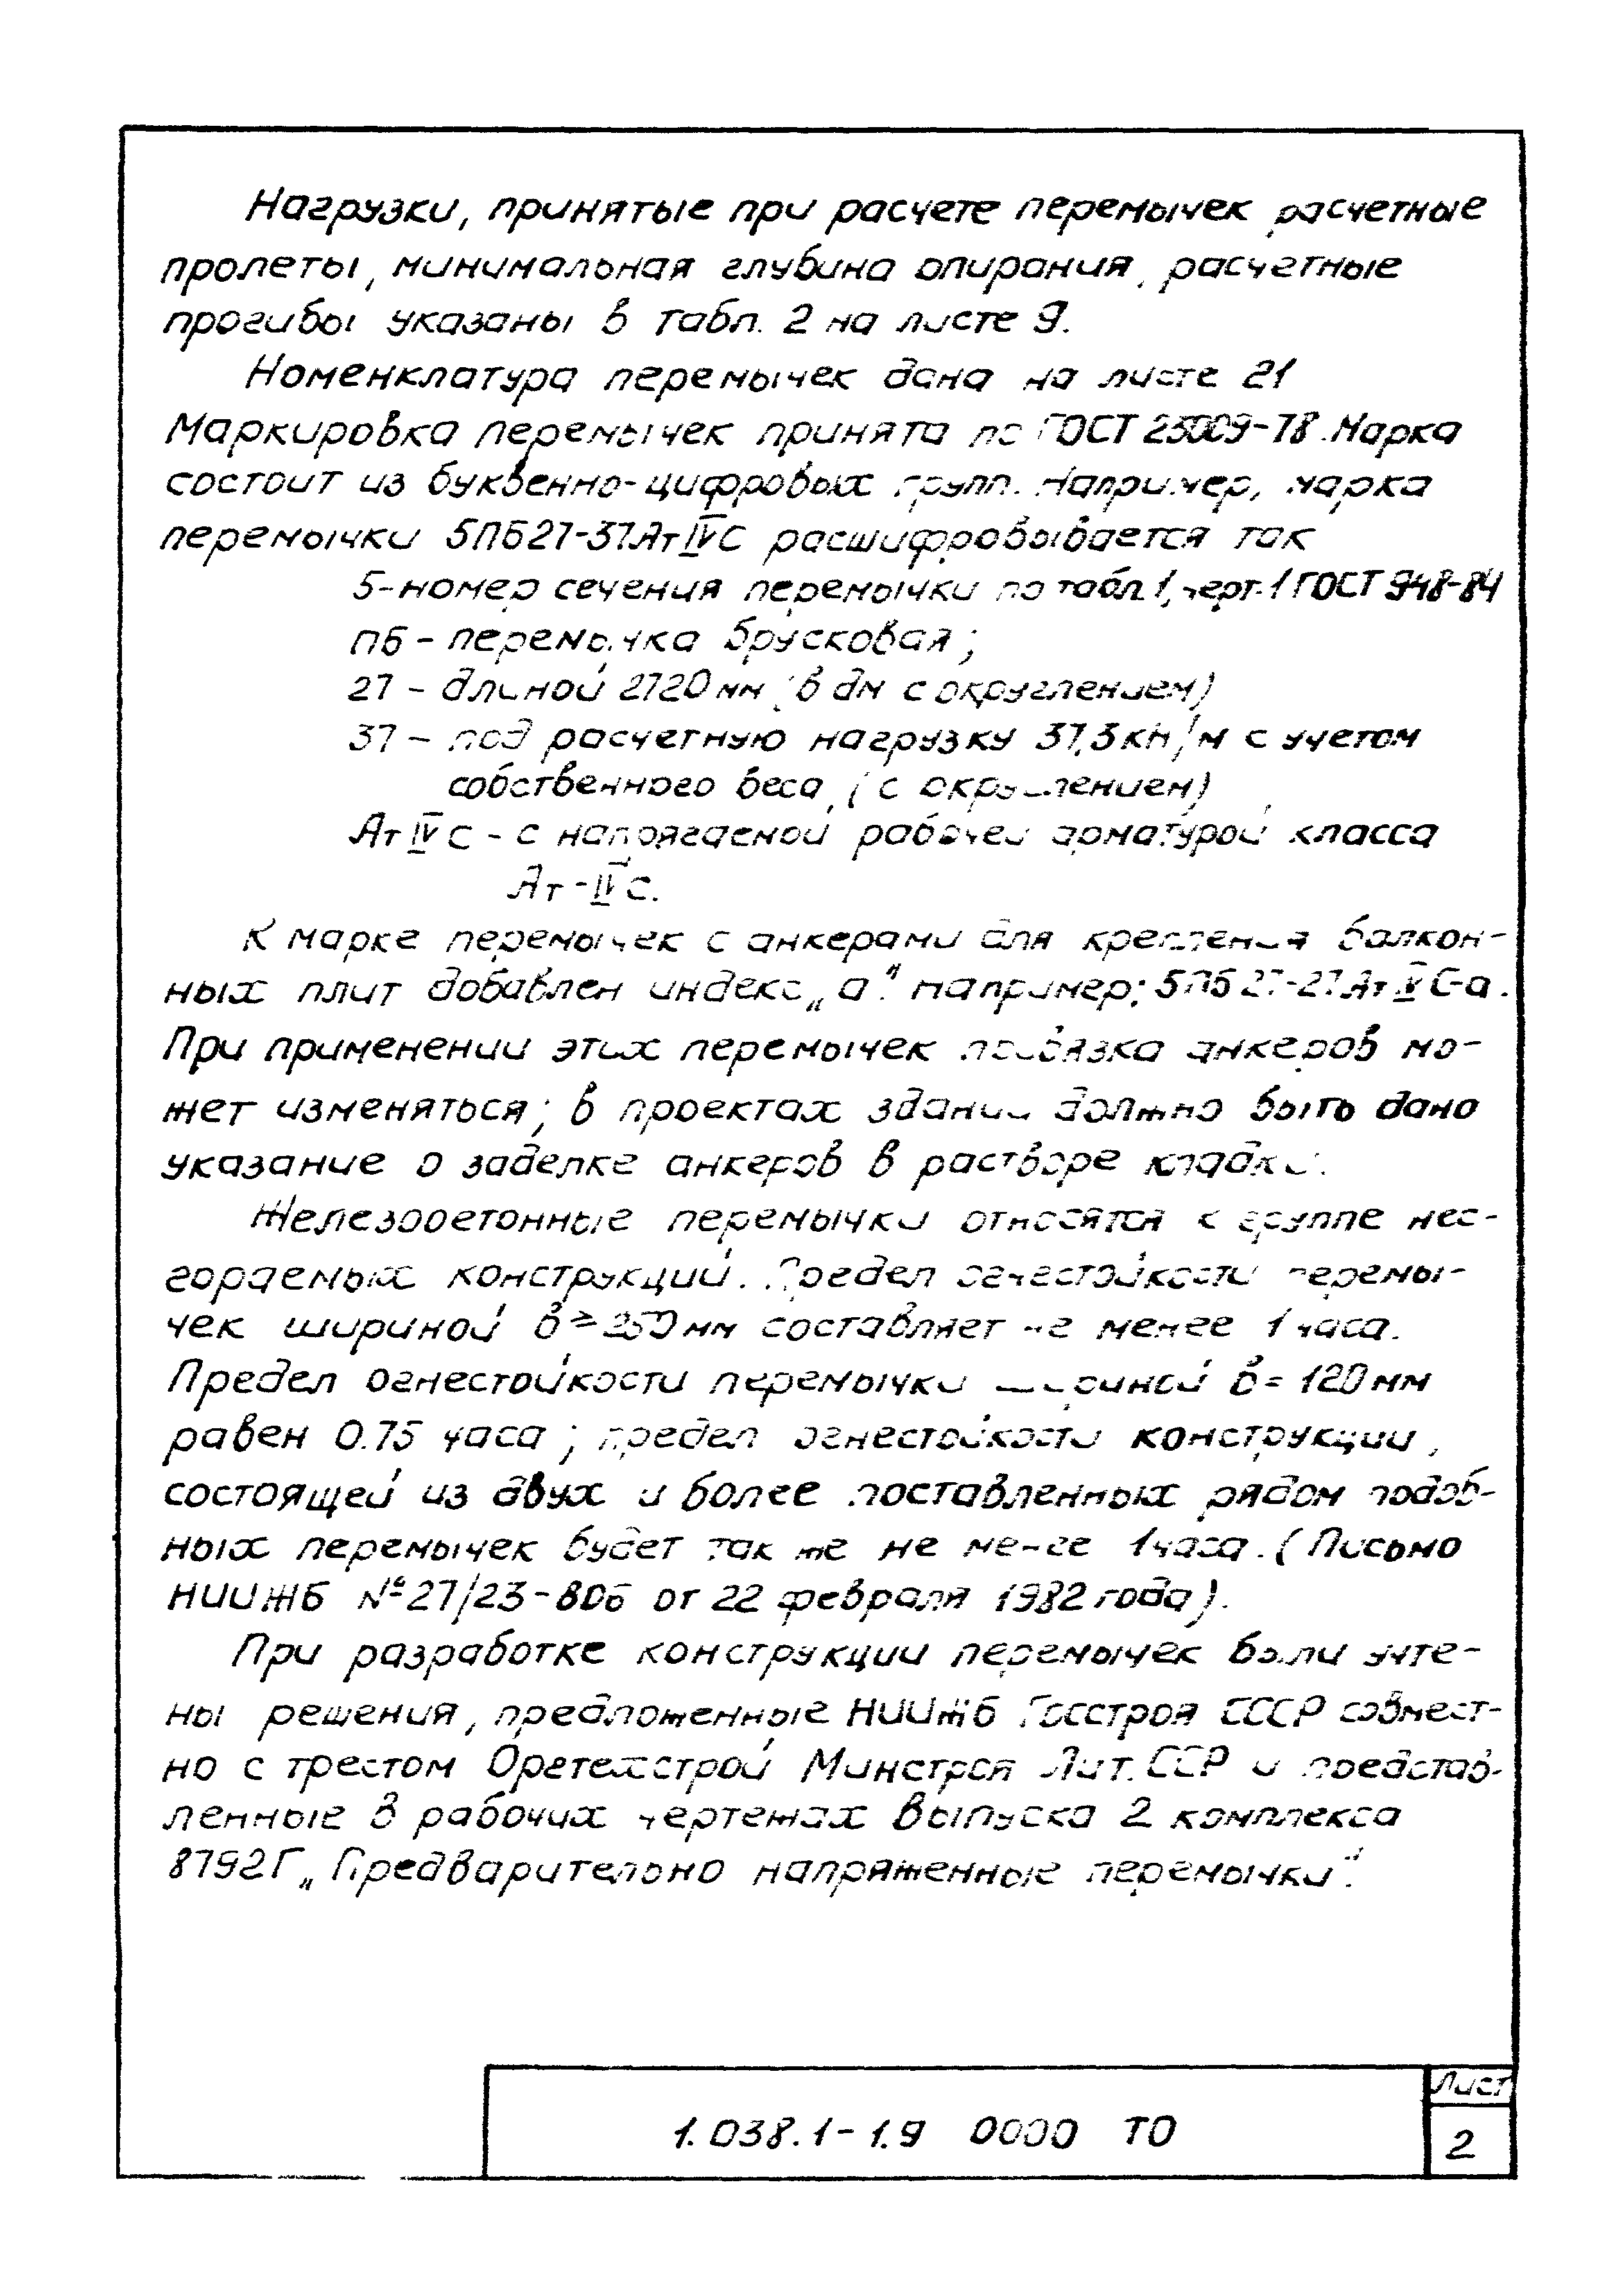 Нагрузки, принятые при расчете перемычек расчетные
пролеты, минимальная глубина опирания, расчетные
прогибы указаны в табл. 2 на листе 9.
Номенклатура перемычек дана на листе 21
Маркировка перемычек принята по ГОСТ 23009-78. Марка
состоит из буквенно-цифровых групп. Например, марка
перемычки 5ПБ27-37АтIVС расшифровывается так
5-номер сечения перемычки по табл 1, черт. 1 ГОСТ 948-84
ПБ - перемычка брусковая;
27 - длиной 2720 мм (в дм с округлением)
37 - под расчетную нагрузку 37,3кН/м с учетом
собственного веса, (с округлением)
АтIVС - с напрягаемой рабочей арматурой класса
Ат-IVС.
К марке перемычек с анкерами для крепления балкон-
ных плит добавлен индекс „а". Например: 5ПБ27-27АтVС-а.
При применении этих перемычек привязка анкеров мо-
жет изменяться; в проектах зданий должно быть дано
указание о заделке анкеров в растворе кладки.
Железобетонные перемычки относятся к группе нес-
гораемых конструкций. Предел огнестойкости перемы-
чек шириной в ≥ 250 мм составляет не менее 1 часа.
Предел огнестойкости перемычки шириной в = 120 мм
равен 0.75 часа; предел огнестойкости конструкции,
состоящей из двух и более поставленных рядом подоб-
ных перемычек будет так же не менее 1 часа. (Письмо
НИИЖБ № 27/23-806 от 22 февраля 1982 года).
При разработке конструкции перемычек были учте-
ны решения, предложенные НИИЖБ Госстроя СССР совмест-
но с трестом Оргтехстрой Минстроя Лит. ССР и представ-
ленные в рабочих чертежах выпуска 2 комплекса
8792Г „Предварительно напряженные перемычки".
Лист
1.038.1-1.9 0000 ТО
2